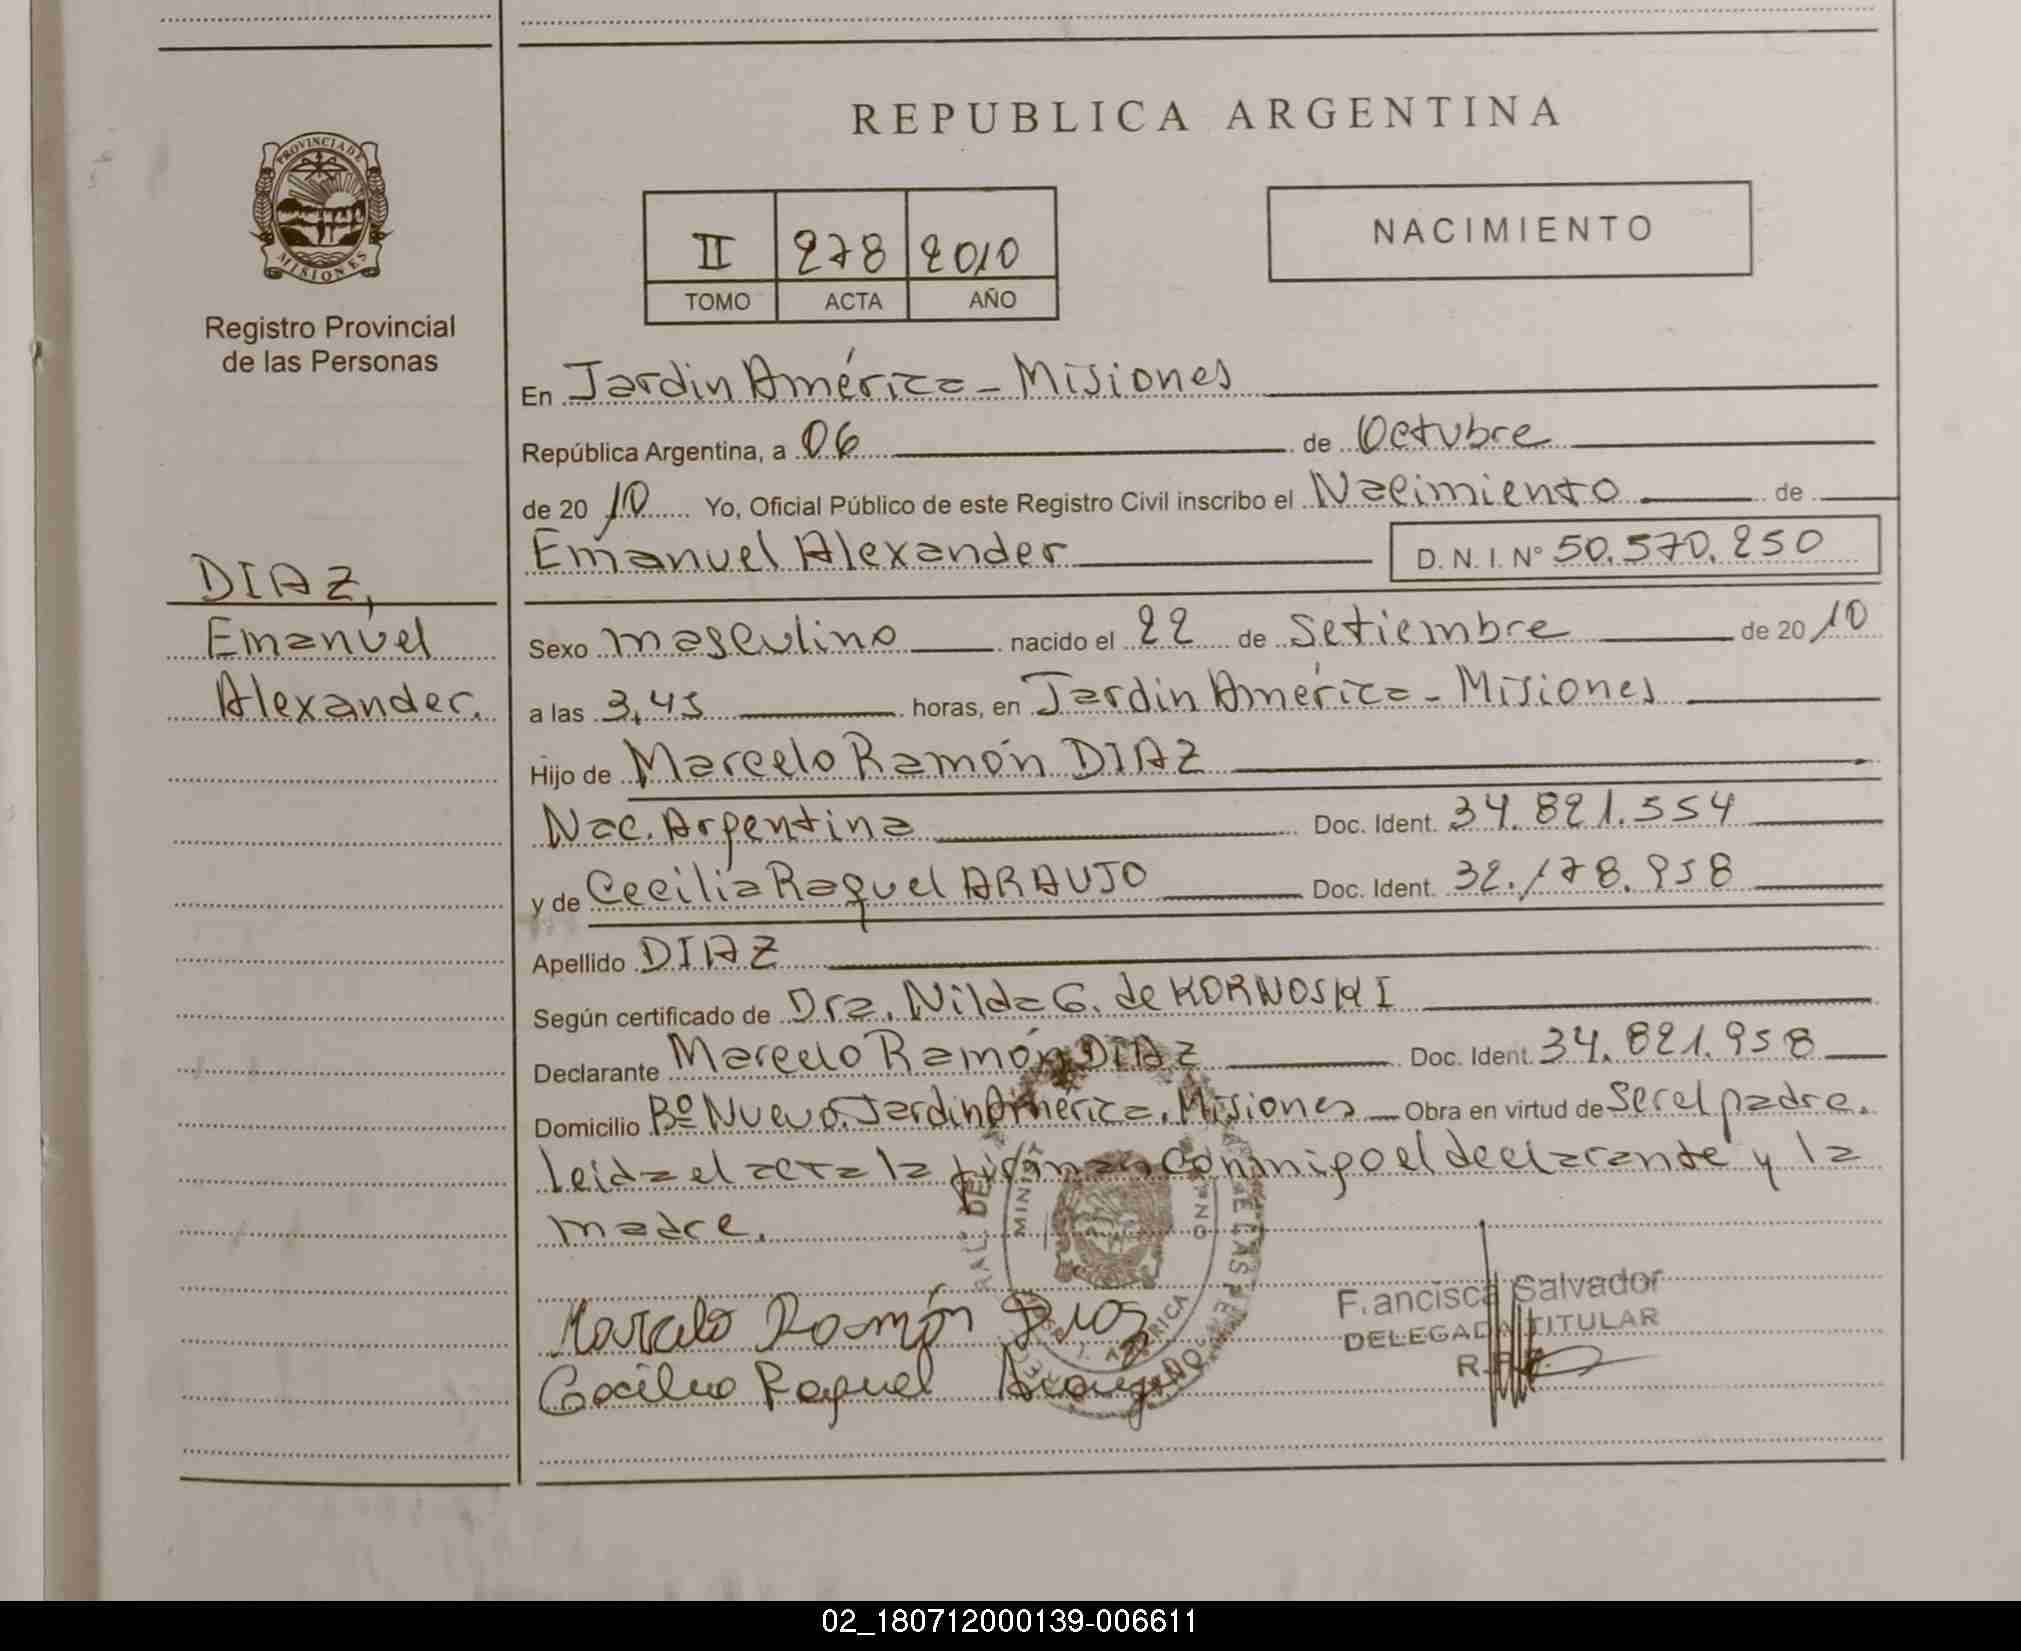 REPUBLICA ARGENTINA
PROVINCIA DE
MISIONES
Registro Provincial
de las Personas
NACIMIENTO
II 278 2010
TOMO ACTA AÑO
En Jardin América - Misiones
República Argentina, a 06 de Octubre
de 2010 Yo, Oficial Público de este Registro Civil inscribo el Nacimiento de
Emanuel Alexander D. N. I. Nº 50.570.250
DIAZ,
Emanuel
Alexander.
Sexo masculino nacido el 22 de Setiembre de 2010
a las 3,45 horas, en Jardin América - Misiones
Hijo de Marcelo Ramón DIAZ
Nac. Argentina Doc. Ident. 34.821.554
y de Cecilia Raquel ARAUJO Doc. Ident. 32.178.958
Apellido DIAZ
Según certificado de Dra. Nilda G. de KORNOSKI
Declarante Marcelo Ramón DIAZ Doc. Ident. 34.821.958
Domicilio Bº Nuevo. Jardin América. Misiones Obra en virtud de Ser el padre.
leida el acta la firman conmigo el declarante y la
madre.
Marcelo Ramón Diaz
Cecilia Raquel Araujo
Francisca Salvador
DELEGADA TITULAR
02_180712000139-006611